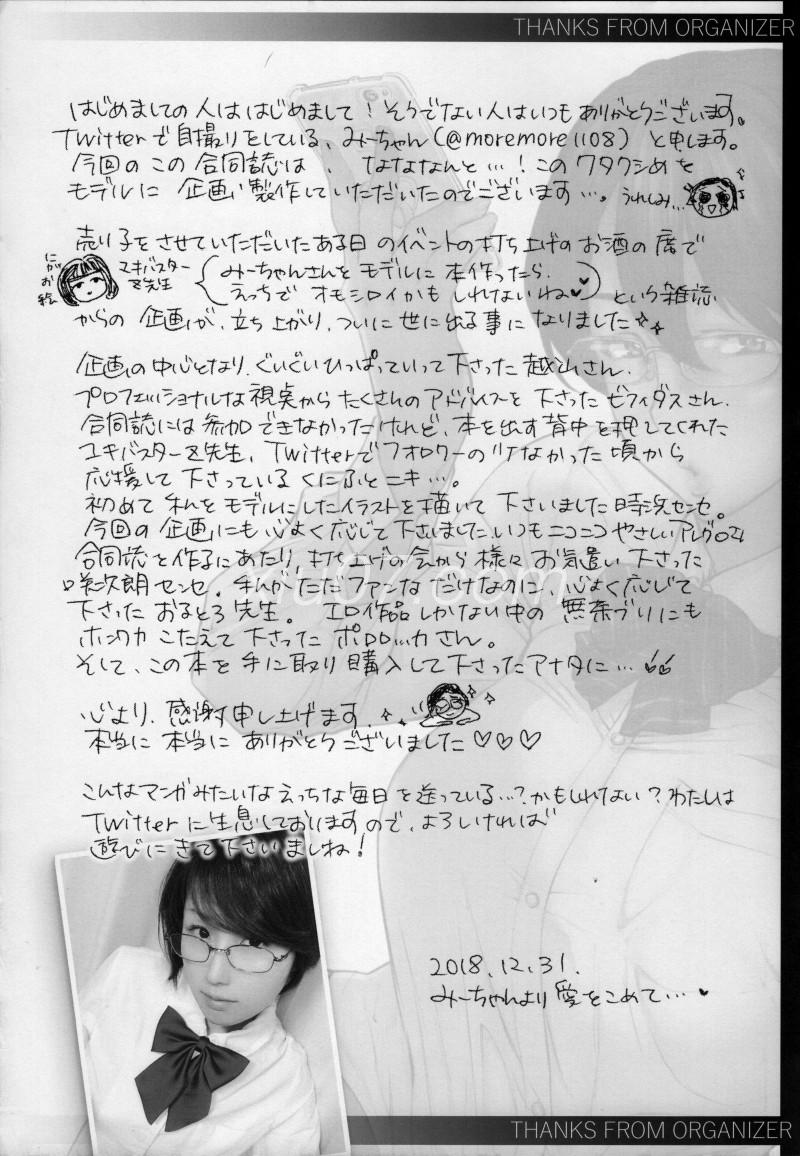 THANKS FROM ORGANIZER
はじめましての人ははじめまして！そうでない人はいつもありがとうございます。
Twitterで自撮りをしている、みーちゃん(@moremore1108)と申します。
今回のこの合同誌は、なななんと…！このワタクシめを
モデルに企画製作していただいたのでございます…。うれしみ…
売り子をさせていただいたある日のイベントの打ち上げのお酒の席で
にがお絵
ユキバスターZ先生
みーちゃんさんをモデルに本作ったら、
えっちでオモシロイかもしれないね♥
という雑談
からの企画が、立ち上がり、ついに世に出る事になりました✧
企画の中心となり、ぐいぐいひっぱっていって下さった越山さん、
プロフェッショナルな視点からたくさんのアドバイスを下さったビフィダスさん、
合同誌には参加できなかったけれど、本を出す背中を押してくれた
ユキバスターZ先生、Twitterでフォロワーの少なかった頃から
応援して下さっているくにふとニキ…。
初めて私をモデルにしたイラストを描いて下さいました時浜センセ。
今回の企画にも心よく応じて下さいました、いつもニコニコやさしいアレグロさん
合同誌を作るにあたり、打ち上げの会から様々お気遣い下さった
咲次朗センセ。私がただファンなだけなのに、心よく応じて
下さったおるとろ先生。エロ作品しかない中の無茶ブリにも
ホンワカこたえて下さったポロロッカさん。
そして、この本を手に取り購入して下さったアナタに…
心より、感謝申し上げます、
本当に本当にありがとうございました♡♡♡
こんなマンガみたいなえっちな毎日を送っている…？かもしれない？わたしは
Twitterに生息しておりますので、よろしければ
遊びにきて下さいましね！
2018.12.31.
みーちゃんより愛をこめて…♥
THANKS FROM ORGANIZER